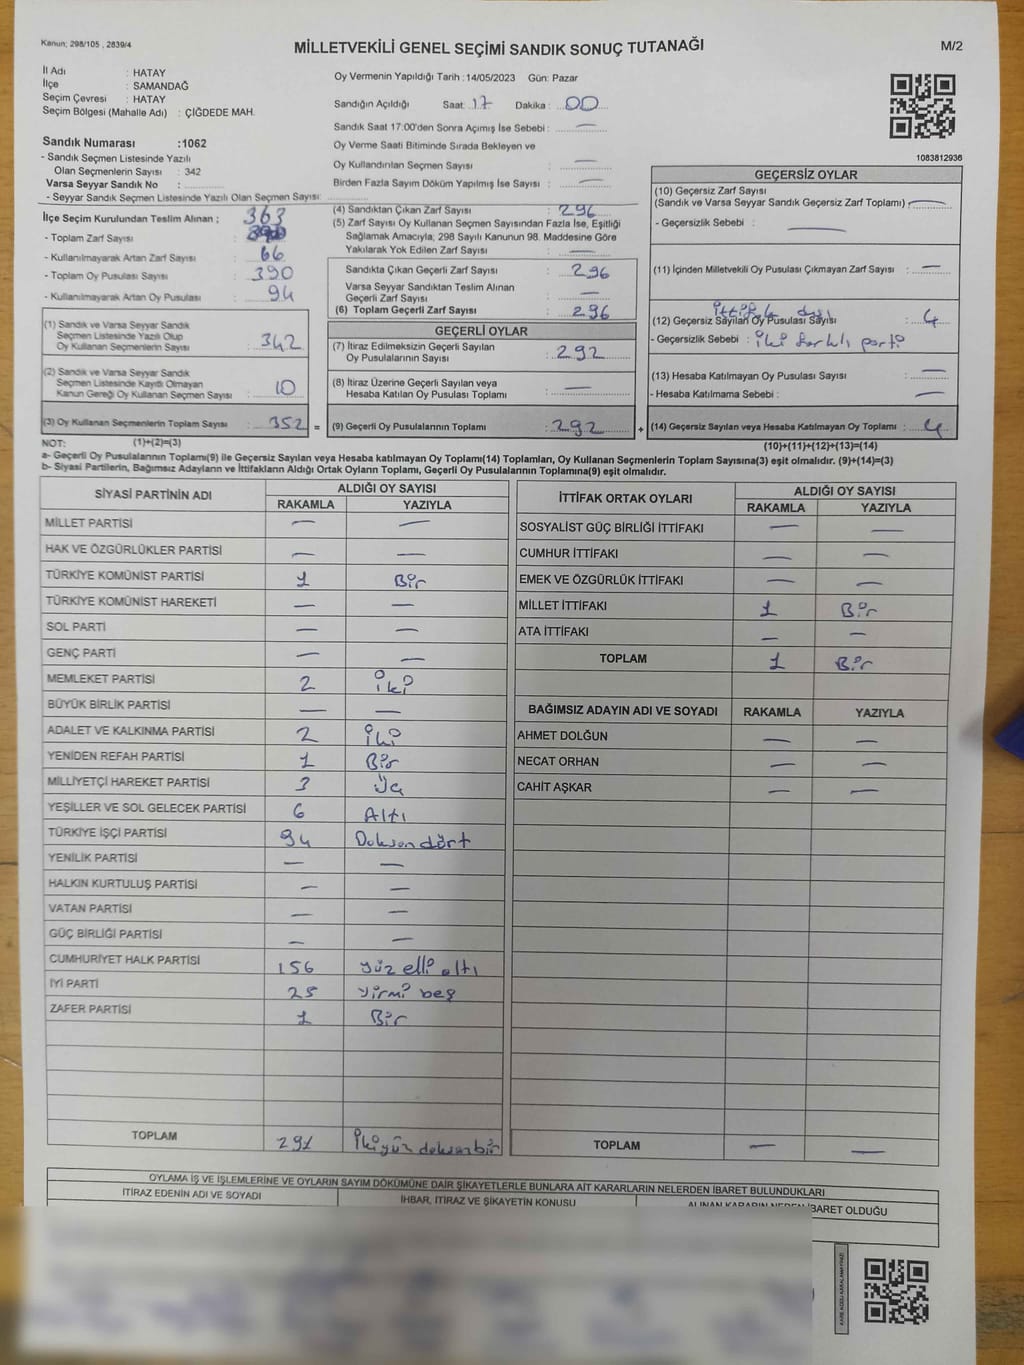 Kanun; 298/105 , 2839/4
MİLLETVEKİLİ GENEL SEÇİMİ SANDIK SONUÇ TUTANAĞI
M/2
İl Adı : HATAY
İlçe : SAMANDAĞ
Seçim Çevresi : HATAY
Seçim Bölgesi (Mahalle Adı) : ÇİĞDEDE MAH.
Sandık Numarası :1062
- Sandık Seçmen Listesinde Yazılı
Olan Seçmenlerin Sayısı : 342
Varsa Seyyar Sandık No :
- Seyyar Sandık Seçmen Listesinde Yazılı Olan Seçmen Sayısı:
Oy Vermenin Yapıldığı Tarih :14/05/2023 Gün: Pazar
Sandığın Açıldığı Saat: 17 Dakika : 00
Sandık Saat 17:00'den Sonra Açımış İse Sebebi : —
Oy Verme Saati Bitiminde Sırada Bekleyen ve
Oy Kullandırılan Seçmen Sayısı —
Birden Fazla Sayım Döküm Yapılmış İse Sayısı : —
1083812936
İlçe Seçim Kurulundan Teslim Alınan ; 363
- Toplam Zarf Sayısı :
- Kullanılmayarak Artan Zarf Sayısı : 66
- Toplam Oy Pusulası Sayısı : 390
- Kullanılmayarak Artan Oy Pusulası : 94
(1) Sandık ve Varsa Seyyar Sandık
Seçmen Listesinde Yazılı Olup
Oy Kullanan Seçmenlerin Sayısı : 342
(2) Sandık ve Varsa Seyyar Sandık
Seçmen Listesinde Kayıtlı Olmayan
Kanun Gereği Oy Kullanan Seçmen Sayısı : 10
(3) Oy Kullanan Seçmenlerin Toplam Sayısı : 352 =
(4) Sandıktan Çıkan Zarf Sayısı : 296
(5) Zarf Sayısı Oy Kullanan Seçmen Sayısından Fazla İse, Eşitliği
Sağlamak Amacıyla; 298 Sayılı Kanunun 98. Maddesine Göre
Yakılarak Yok Edilen Zarf Sayısı : —
Sandıkta Çıkan Geçerli Zarf Sayısı : 296
Varsa Seyyar Sandıktan Teslim Alınan
Geçerli Zarf Sayısı : —
(6) Toplam Geçerli Zarf Sayısı : 296
GEÇERLİ OYLAR
(7) İtiraz Edilmeksizin Geçerli Sayılan
Oy Pusulalarının Sayısı : 292
(8) İtiraz Üzerine Geçerli Sayılan veya
Hesaba Katılan Oy Pusulaları Toplamı : —
(9) Geçerli Oy Pusulalarının Toplamı : 292 +
GEÇERSİZ OYLAR
(10) Geçersiz Zarf Sayısı
(Sandık ve Varsa Seyyar Sandık Geçersiz Zarf Toplamı) : —
- Geçersizlik Sebebi : —
(11) İçinden Milletvekili Oy Pusulası Çıkmayan Zarf Sayısı : —
(12) Geçersiz Sayılan Oy Pusulası Sayısı : 4
- Geçersizlik Sebebi : iki farklı parti
(13) Hesaba Katılmayan Oy Pusulası Sayısı : —
- Hesaba Katılmama Sebebi : —
(14) Geçersiz Sayılan veya Hesaba Katılmayan Oy Toplamı : 4
NOT: (1)+(2)=(3)
(10)+(11)+(12)+(13)=(14)
a- Geçerli Oy Pusulalarının Toplamı(9) ile Geçersiz Sayılan veya Hesaba katılmayan Oy Toplamı(14) Toplamları, Oy Kullanan Seçmenlerin Toplam Sayısına(3) eşit olmalıdır. (9)+(14)=(3)
b- Siyasi Partilerin, Bağımsız Adayların ve İttifakların Aldığı Ortak Oyların Toplamı, Geçerli Oy Pusulalarının Toplamına(9) eşit olmalıdır.
SİYASİ PARTİNİN ADI ALDIĞI OY SAYISI
RAKAMLA YAZIYLA
MİLLET PARTİSİ — —
HAK VE ÖZGÜRLÜKLER PARTİSİ — —
TÜRKİYE KOMÜNİST PARTİSİ 1 Bir
TÜRKİYE KOMÜNİST HAREKETİ — —
SOL PARTİ — —
GENÇ PARTİ — —
MEMLEKET PARTİSİ 2 iki
BÜYÜK BİRLİK PARTİSİ — —
ADALET VE KALKINMA PARTİSİ 2 iki
YENİDEN REFAH PARTİSİ 1 Bir
MİLLİYETÇİ HAREKET PARTİSİ 3 Üç
YEŞİLLER VE SOL GELECEK PARTİSİ 6 Altı
TÜRKİYE İŞÇİ PARTİSİ 94 Doksan dört
YENİLİK PARTİSİ — —
HALKIN KURTULUŞ PARTİSİ — —
VATAN PARTİSİ — —
GÜÇ BİRLİĞİ PARTİSİ — —
CUMHURİYET HALK PARTİSİ 156 yüz elli altı
İYİ PARTİ 25 yirmi beş
ZAFER PARTİSİ 1 Bir
TOPLAM 291 ikiyüz doksanbir
İTTİFAK ORTAK OYLARI ALDIĞI OY SAYISI
RAKAMLA YAZIYLA
SOSYALİST GÜÇ BİRLİĞİ İTTİFAKI — —
CUMHUR İTTİFAKI — —
EMEK VE ÖZGÜRLÜK İTTİFAKI — —
MİLLET İTTİFAKI 1 Bir
ATA İTTİFAKI — —
TOPLAM 1 Bir
BAĞIMSIZ ADAYIN ADI VE SOYADI RAKAMLA YAZIYLA
AHMET DOLĞUN — —
NECAT ORHAN — —
CAHİT AŞKAR — —
TOPLAM — —
OYLAMA İŞ VE İŞLEMLERİNE VE OYLARIN SAYIM DÖKÜMÜNE DAİR ŞİKAYETLERLE BUNLARA AİT KARARLARIN NELERDEN İBARET BULUNDUKLARI
İTİRAZ EDENİN ADI VE SOYADI
İHBAR, İTİRAZ VE ŞİKAYETİN KONUSU
ALINAN KARARIN NEDEN İBARET OLDUĞU